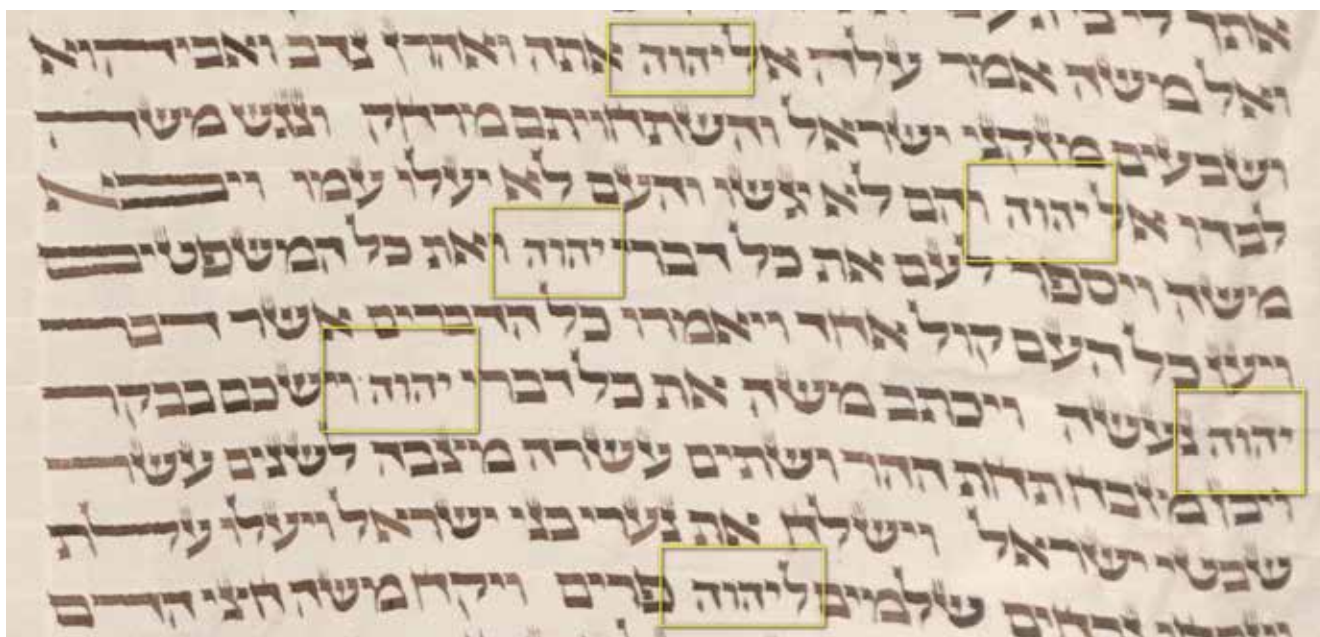 אתך לי כי
ואל משה אמר עלה אל יהוה אתה ואהרן נדב ואביהוא
ושבעים מזקני ישראל והשתחויתם מרחק ונגש משה
לבדו אל יהוה והם לא יגשו והעם לא יעלו עמו ויבא
משה ויספר לעם את כל דברי יהוה ואת כל המשפטים
ויען כל העם קול אחד ויאמרו כל הדברים אשר דבר
יהוה נעשה ויכתב משה את כל דברי יהוה וישכם בבקר
ויבן מזבח תחת ההר ושתים עשרה מצבה לשנים עשר
שבטי ישראל וישלח את נערי בני ישראל ויעלו עלת
ויזבחו זבחים שלמים ליהוה פרים ויקח משה חצי הדם